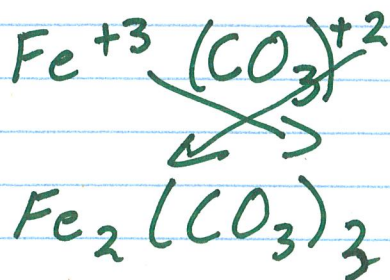 Fe⁺³ (CO₃)⁺²
Fe₂(CO₃)₃